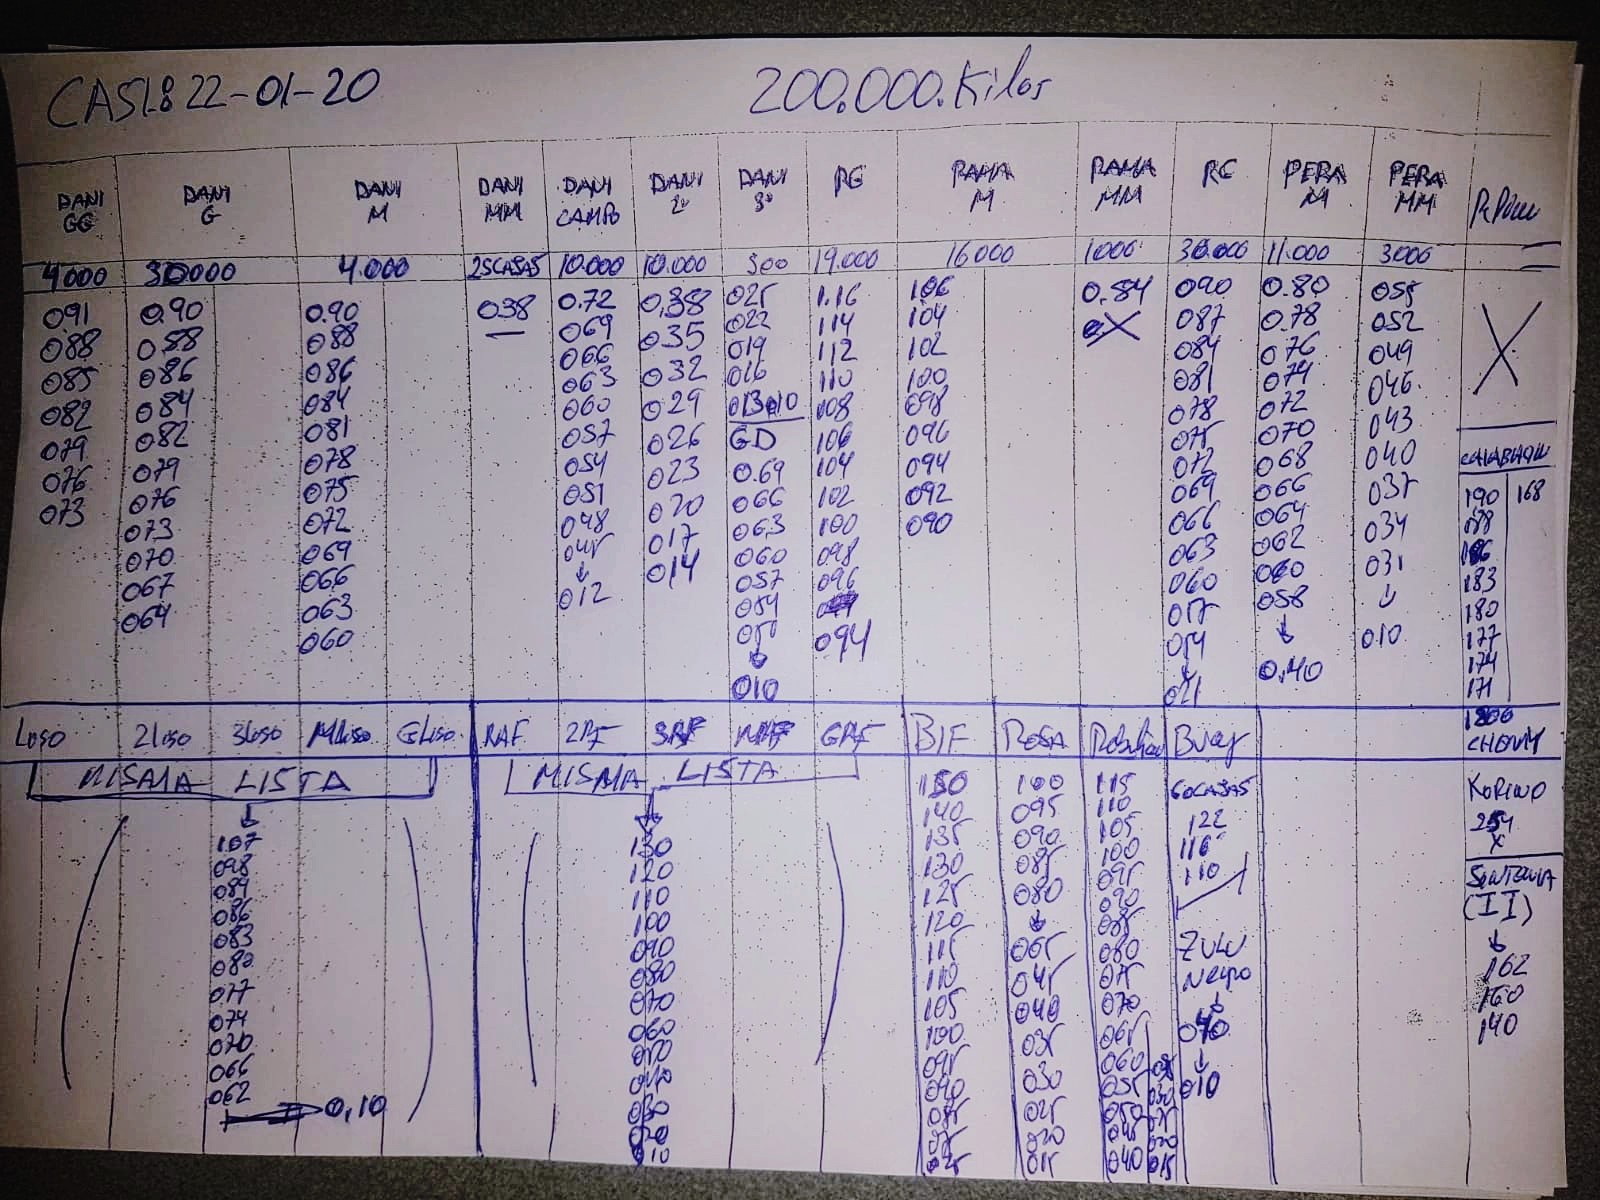 CASI.8 22-01-20 200.000.Kilos
DANI GG DANI G DANI M DANI MM DANI CAMPO DANI 2ª DANI 3ª RG RAMA M RAMA MM RC PERA M PERA MM
4000 30000 4.000 25CAJAS 10.000 10.000 300 19.000 16000 1000 30.000 11.000 3000
091 0.90 0.90 038 0.72 0,38 025 1.16 106 0.84 090 0.80 055
088 088 088 069 035 022 114 104 X 087 0.78 052 X
085 086 086 066 032 019 112 102 084 076 049
082 084 084 063 029 016 110 100 081 074 046
079 082 081 060 026 013 010 108 098 078 072 043
076 079 078 057 023 GD 106 096 075 070 040
073 076 075 054 020 0.69 104 094 072 068 037
073 072 051 017 066 102 092 069 066 034
070 069 048 014 063 100 090 066 064 031
067 066 045 060 098 063 062 ↓
064 063 ↓ 057 096 060 060 010
060 012 054 094 057 058
050 054 ↓
↓ ↓ 0,40
010 021
190 168
188
186
183
180
177
174
171
LISO 2LISO 3LISO MLISO GLISO RAF 2RF 3RF MRF GRF BIF ROSA
MISMA LISTA MISMA LISTA
↓
107
098
089
086
083
080
077
074
070
066
062
→ 0,10
130
120
110
100
090
080
070
060
050
040
030
020
010
150 100 115 60CAJAS
140 095 110 122
135 090 105 116
130 085 100 110
125 080 095
120 ↓ 090
115 065 085 ZULU
110 045 080 NEGRO
105 040 075 ↓
100 035 070 040
095 030 065 ↓
090 025 060 010
085 020 055
015 050
025 045
040
035
030
025
020
015
CHERRY
KORINO
254
X
(II)
↓
162
160
140